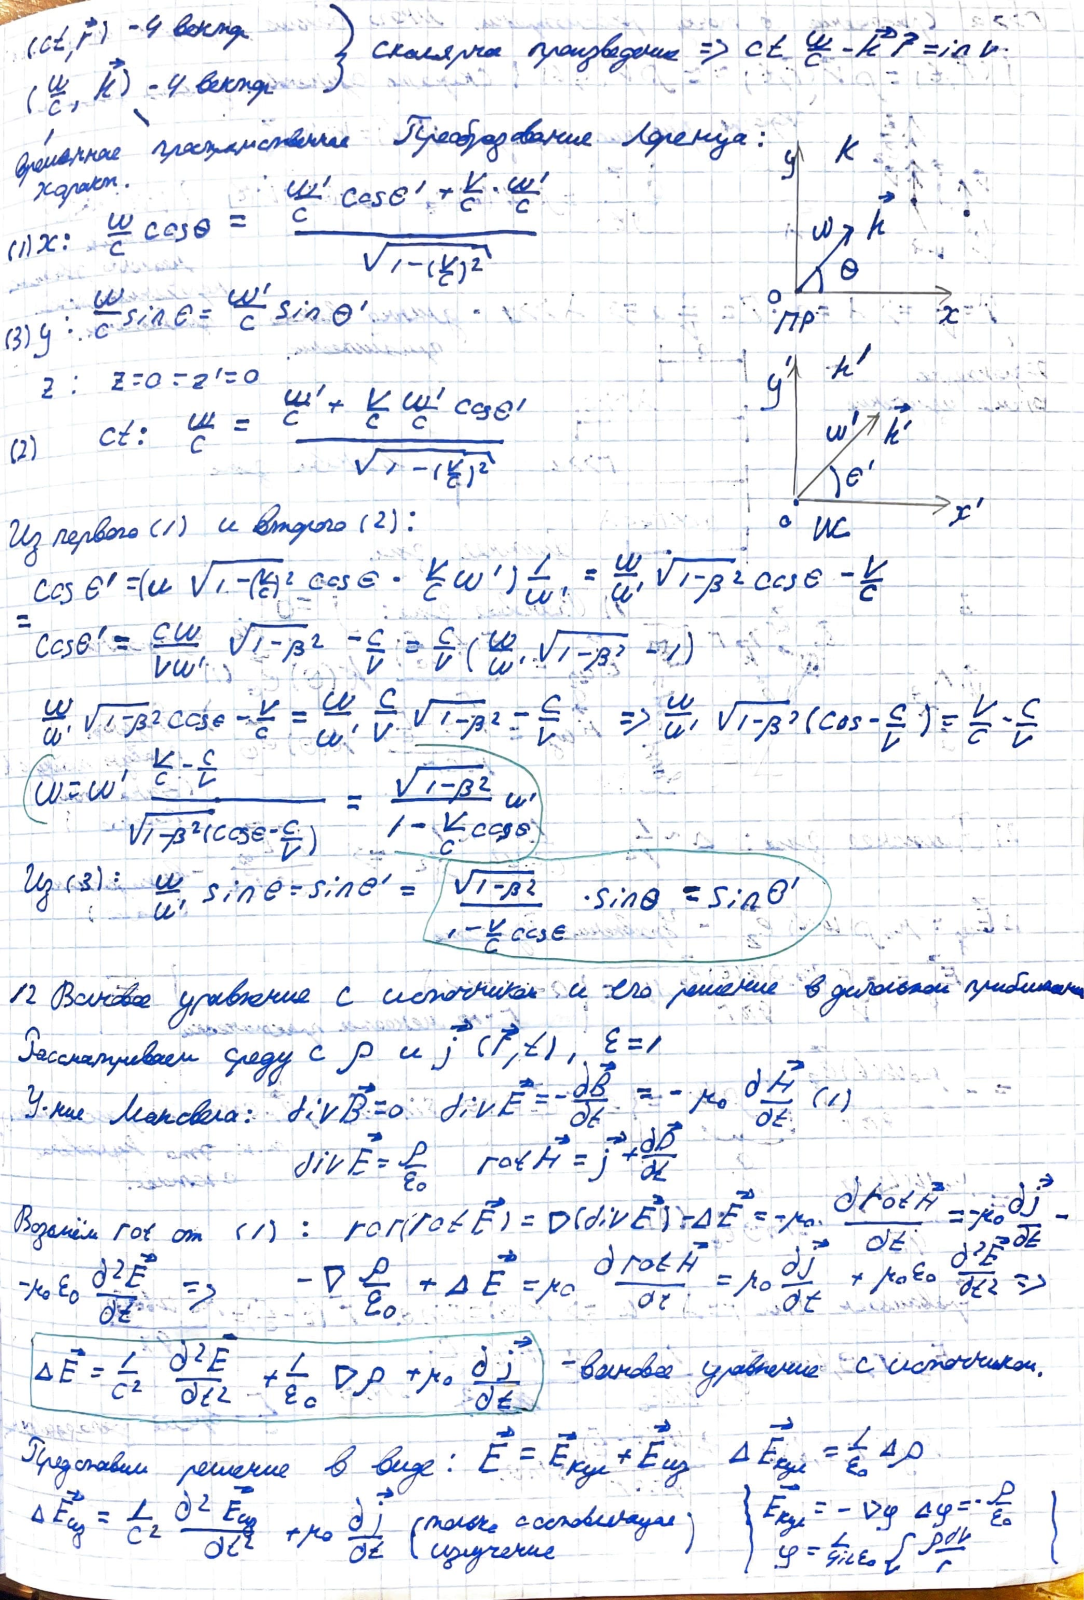 (ct, r⃗) - 4 вектор
(ω/c, k⃗) - 4 вектор
} скалярное произведение => ct ω/c - k⃗ r⃗ = inv.
временное характ. пространственное Преобразование Лоренца:
(1) x: ω/c cosθ = (ω'/c cosθ' + V/c · ω'/c) / √(1-(V/c)²)
(3) y: ω/c sinθ = ω'/c sinθ'
z: z=0=z'=0
(2) ct: ω/c = (ω'/c + V/c ω'/c cosθ') / √(1-(V/c)²)
y K
ω k⃗
θ
0 x
ПР
y' k'
ω' k⃗'
θ'
0 x'
ИС
Из первого (1) и второго (2):
cosθ' = (ω √(1-(V/c)²) cosθ - V/c ω') 1/ω' = ω/ω' √(1-β²) cosθ - V/c
=
cosθ' = cω/Vω' √(1-β²) - c/V = c/V (ω/ω' √(1-β²) - 1)
ω/ω' √(1-β²) cosθ - V/c = ω/ω' c/V √(1-β²) - c/V => ω/ω' √(1-β²) (cos - c/V) = V/c - c/V
ω = ω' (V/c - c/V) / (√(1-β²) (cosθ - c/V)) = √(1-β²) / (1 - V/c cosθ) ω'
Из (3): ω/ω' sinθ = sinθ' = √(1-β²) / (1 - V/c cosθ) · sinθ = sinθ'
12 Волновое уравнение с источником и его решение в дипольном приближении
Рассматриваем среду с ρ и j⃗ (r⃗,t), ε=1
У-ние Максвелла: divB⃗=0 divE⃗ = -∂B⃗/∂t = -μ₀ ∂H⃗/∂t (1)
divE⃗ = ρ/ε₀ rotH⃗ = j⃗ + ∂D⃗/∂t
Возьмём rot от (1): rot(rotE⃗) = ∇(divE⃗) - ΔE⃗ = -μ₀ ∂rotH⃗/∂t = -μ₀ ∂j⃗/∂t -
-μ₀ε₀ ∂²E⃗/∂t => -∇ ρ/ε₀ + ΔE⃗ = μ₀ ∂rotH⃗/∂t = μ₀ ∂j⃗/∂t + μ₀ε₀ ∂²E⃗/∂t² =>
ΔE⃗ = 1/c² ∂²E⃗/∂t² + 1/ε₀ ∇ρ + μ₀ ∂j⃗/∂t - волновое уравнение с источником.
Представим решение в виде: E⃗ = E⃗кул + E⃗из ΔE⃗кул = 1/ε₀ Δρ
ΔE⃗из = 1/c² ∂²E⃗из/∂t² + μ₀ ∂j⃗/∂t (только составляющие излучение) { E⃗кул = -∇φ Δφ = -ρ/ε₀
φ = 1/4πε₀ ∫ ρdV/r }